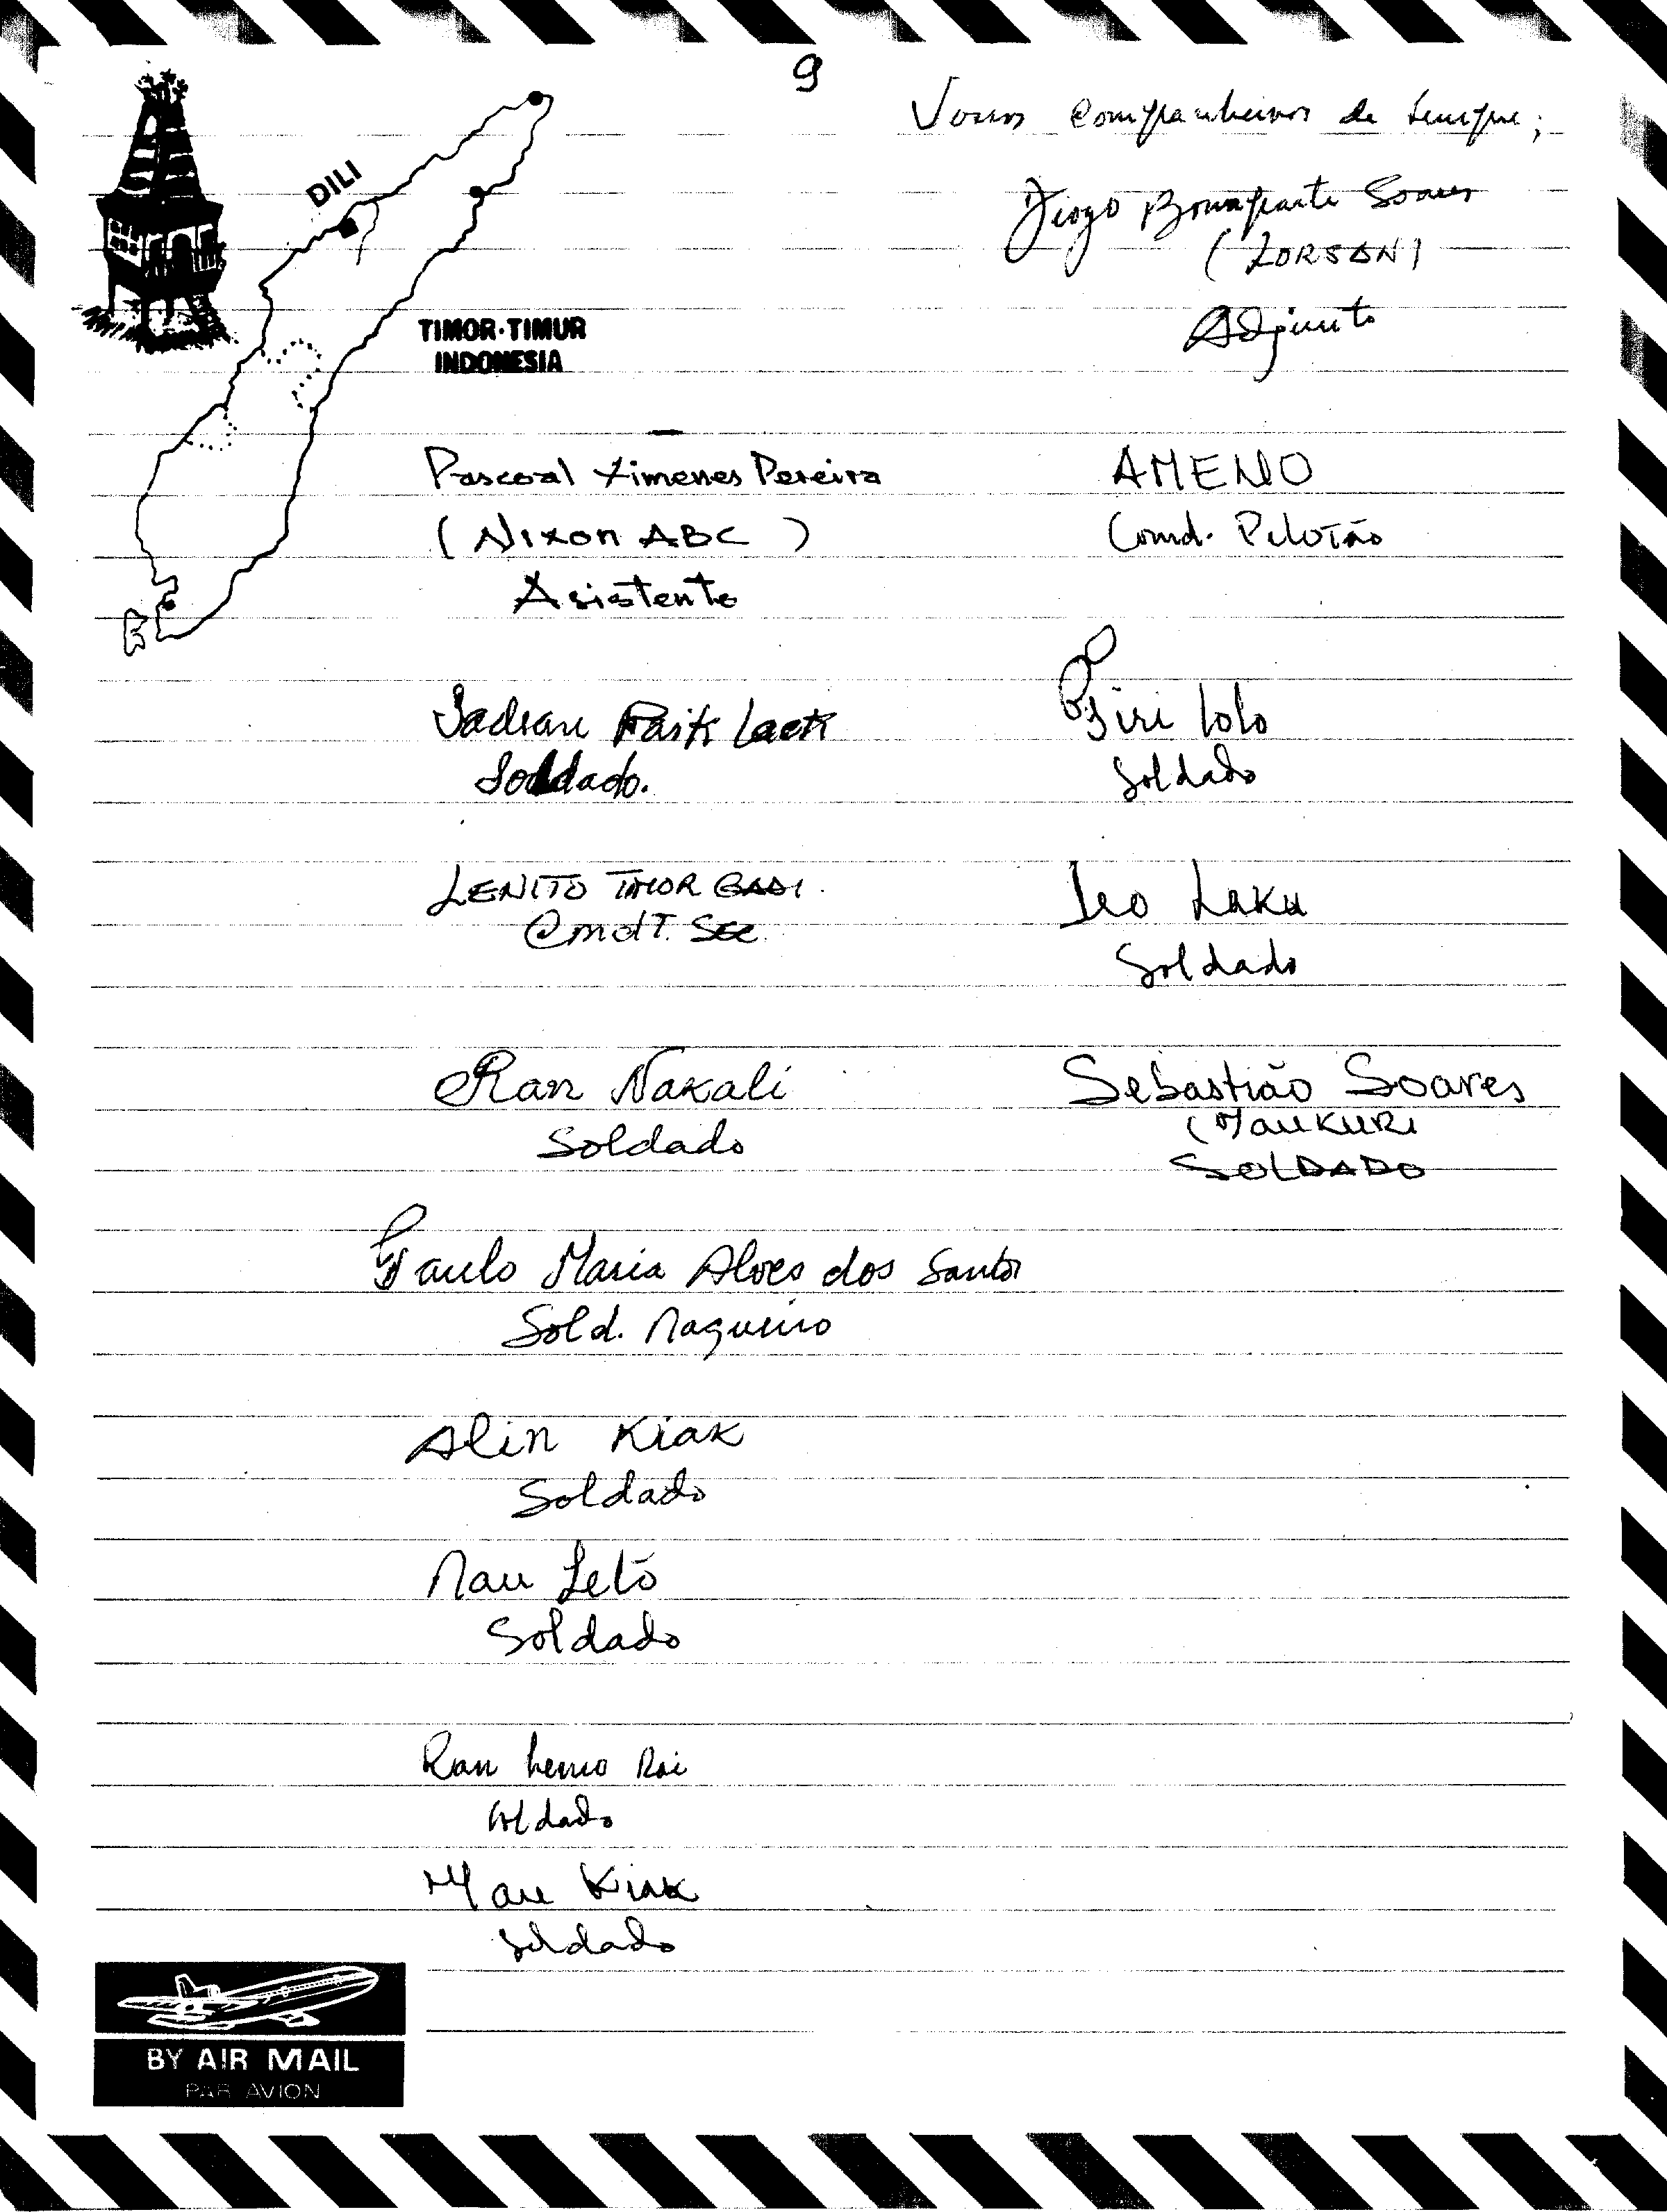 9
Vossos Companheiros de sempre;
DILI
Diogo Bonaparte Soares
(LORSAN)
TIMOR·TIMUR
INDONESIA
Adjunto
Pascoal Ximenes Pereira
(Nixon ABC)
Asistente
AMENO
Comd. Pelotão
Faik Laek
Soldado.
Piri Lolo
Soldado
LENITO TIMOR
CmdT. Sec
Leo Laku
Soldado
Ran Nakali
Soldado
Sebastião Soares
(MauKURI
SOLDADO
Paulo Maria Alves dos Santos
Sold.
Alin Kiak
Soldado
Mau Leto
Soldado
Ran Rai
Soldado
Mau Kiak
Soldado
BY AIR MAIL
PAR AVION